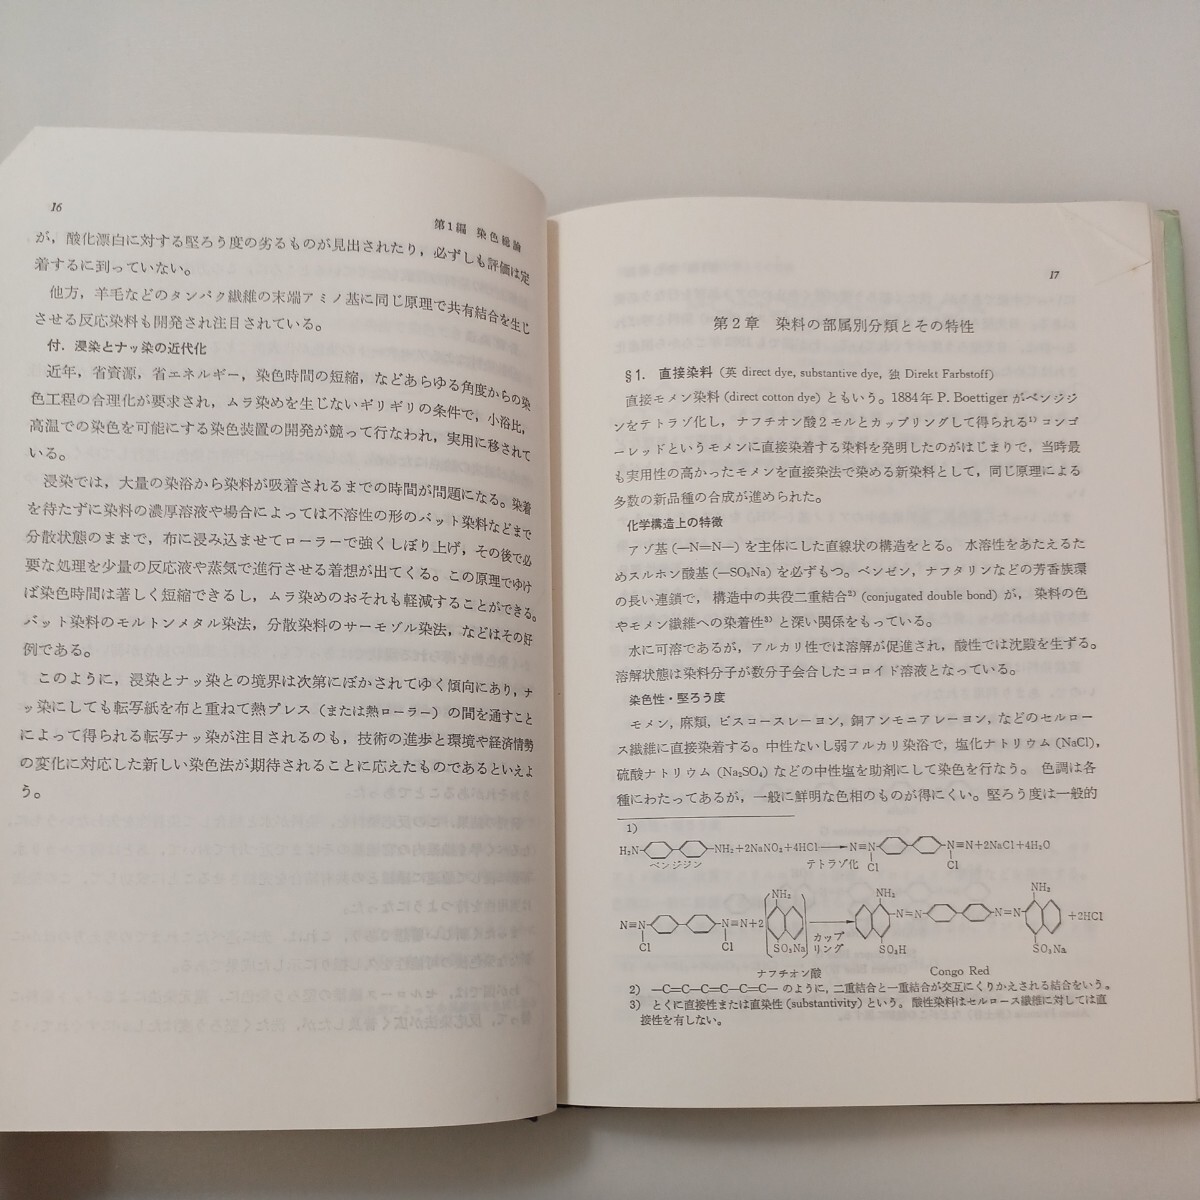 16
第1編 染色総論
が，酸化漂白に対する堅ろう度の劣るものが見出されたり，必ずしも評価は定
着するに到っていない。
他方，羊毛などのタンパク繊維の末端アミノ基に同じ原理で共有結合を生じ
させる反応染料も開発され注目されている。
付．浸染とナッ染の近代化
近年，省資源，省エネルギー，染色時間の短縮，などあらゆる角度からの染
色工程の合理化が要求され，ムラ染めを生じないギリギリの条件で，小浴比，
高温での染色を可能にする染色装置の開発が競って行なわれ，実用に移されて
いる。
浸染では，大量の染浴から染料が吸着されるまでの時間が問題になる。染着
を待たずに染料の濃厚溶液や場合によっては不溶性の形のバット染料などまで
分散状態のままで，布に浸み込ませてローラーで強くしぼり上げ，その後で必
要な処理を少量の反応液や蒸気で進行させる着想が出てくる。この原理でゆけ
ば染色時間は著しく短縮できるし，ムラ染めのおそれも軽減することができる。
バット染料のモルトンメタル染法，分散染料のサーモゾル染法，などはその好
例である。
このように，浸染とナッ染との境界は次第にぼかされてゆく傾向にあり，ナ
ッ染にしても転写紙を布と重ねて熱プレス（または熱ローラー）の間を通すこと
によって得られる転写ナッ染が注目されるのも，技術の進歩と環境や経済情勢
の変化に対応した新しい染色法が期待されることに応えたものであるといえよ
う。
17
第2章 染料の部属別分類とその特性
§1. 直接染料（英 direct dye, substantive dye, 独 Direkt Farbstoff）
直接モメン染料 (direct cotton dye) ともいう。1884年 P. Boettiger がベンジジ
ンをテトラゾ化し，ナフチオン酸2モルとカップリングして得られる1) コンゴ
ーレッドというモメンに直接染着する染料を発明したのがはじまりで，当時最
も実用性の高かったモメンを直接染法で染める新染料として，同じ原理による
多数の新品種の合成が進められた。
化学構造上の特徴
アゾ基 (—N=N—) を主体にした直線状の構造をとる。水溶性をあたえるた
めスルホン酸基 (—SO3Na) を必ずもつ。ベンゼン，ナフタリンなどの芳香族環
の長い連鎖で，構造中の共役二重結合2) (conjugated double bond) が，染料の色
やモメン繊維への染着性3) と深い関係をもっている。
水に可溶であるが，アルカリ性では溶解が促進され，酸性では沈殿を生ずる。
溶解状態は染料分子が数分子会合したコロイド溶液となっている。
染色性・堅ろう度
モメン，麻類，ビスコースレーヨン，銅アンモニアレーヨン，などのセルロー
ス繊維に直接染着する。中性ないし弱アルカリ染浴で，塩化ナトリウム (NaCl)，
硫酸ナトリウム (Na2SO4) などの中性塩を助剤にして染色を行なう。色調は各
種にわたってあるが，一般に鮮明な色相のものが得にくい。堅ろう度は一般的
1)
H2N— —NH2+2NaNO2+4HCl → N≡N— —N≡N+2NaCl+4H2O
ベンジジン テトラゾ化 Cl Cl
NH2 NH2 NH2
N≡N— —N≡N+2 → —N=N— —N=N— +2HCl
Cl Cl SO3Na カップリング SO3H SO3Na
ナフチオン酸 Congo Red
2) —C=C—C=C—C=C— のように，二重結合と一重結合が交互にくりかえされる結合をいう。
3) とくに直接性または直染性 (substantivity) という。酸性染料はセルロース繊維に対しては直
接性を有しない。